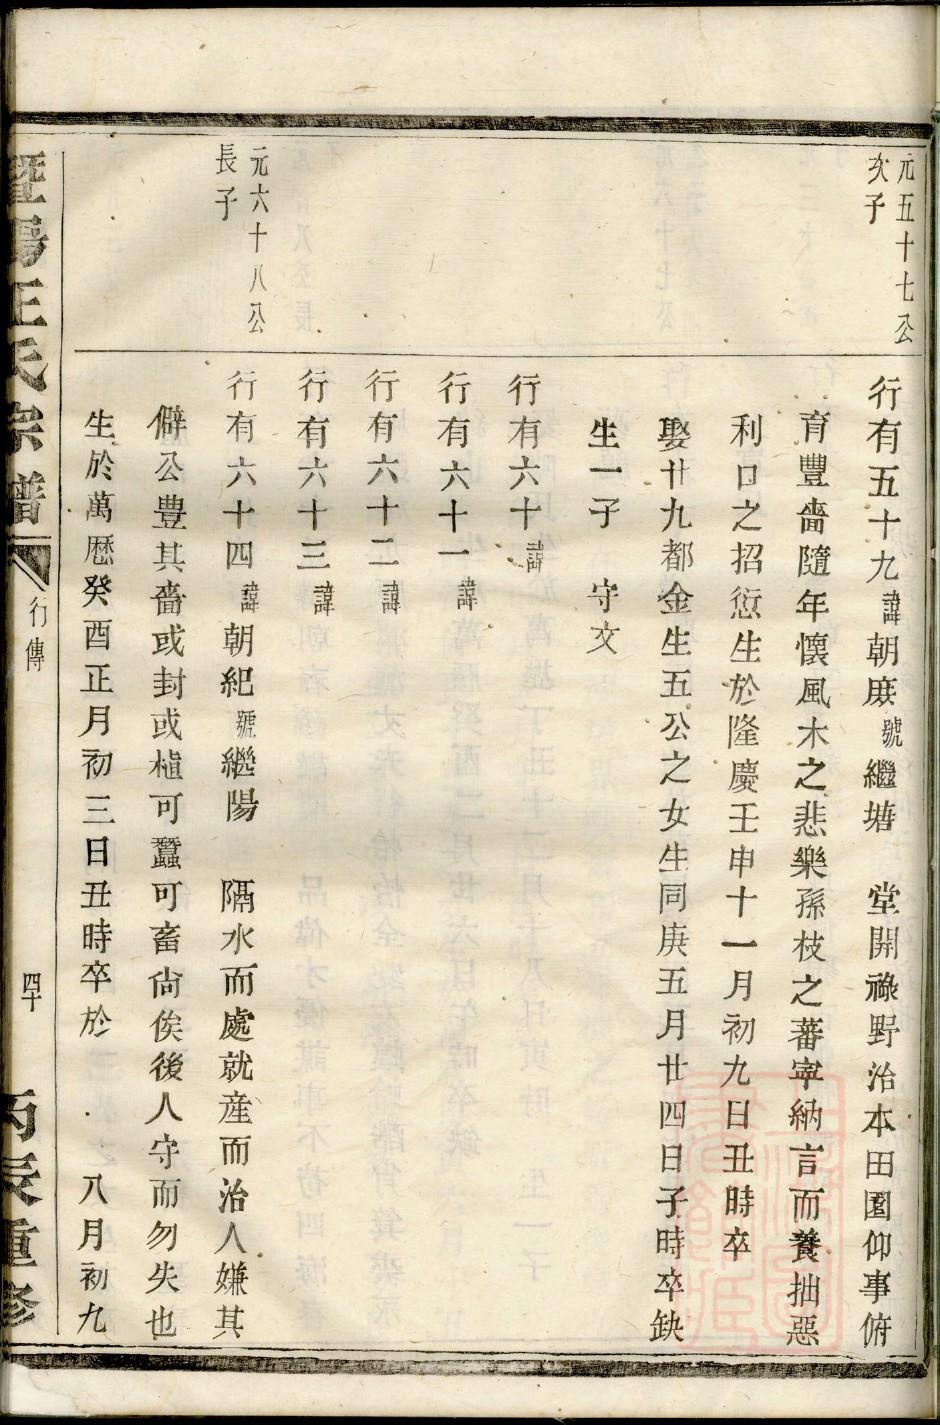 元五十七公
次子
行有五十九諱朝庻號繼塘 堂開祿野治本田園仰事俯
育豐嗇隨年懷風木之悲樂孫枝之蕃寧納言而養拙惡
利口之招愆生於隆慶壬申十一月初九日丑時卒
娶廿九都金生五公之女生同庚五月廿四日子時卒缺
生一子 守文
行有六十諱
行有六十一諱
行有六十二諱
行有六十三諱
元六十八公
長子
行有六十四諱朝紀號繼陽 隔水而處就産而治人嫌其
僻公豊其嗇或封或植可蠶可畜尙俟後人守而勿失也
生於萬厯癸酉正月初三日丑時卒於 八月初九
暨陽王氏宗譜
行傳
四十
丙辰重修